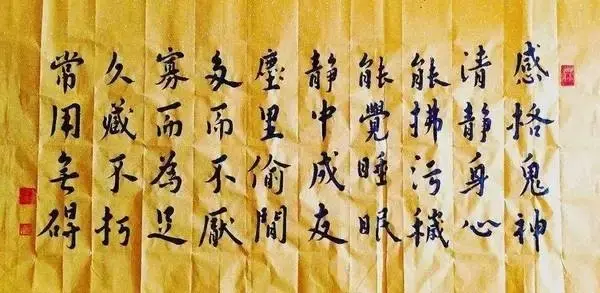 感格鬼神
清静身心
能拂污穢
能覺睡眠
静中成友
塵里偷閒
多而不厭
寡而為足
久藏不朽
常用無碍